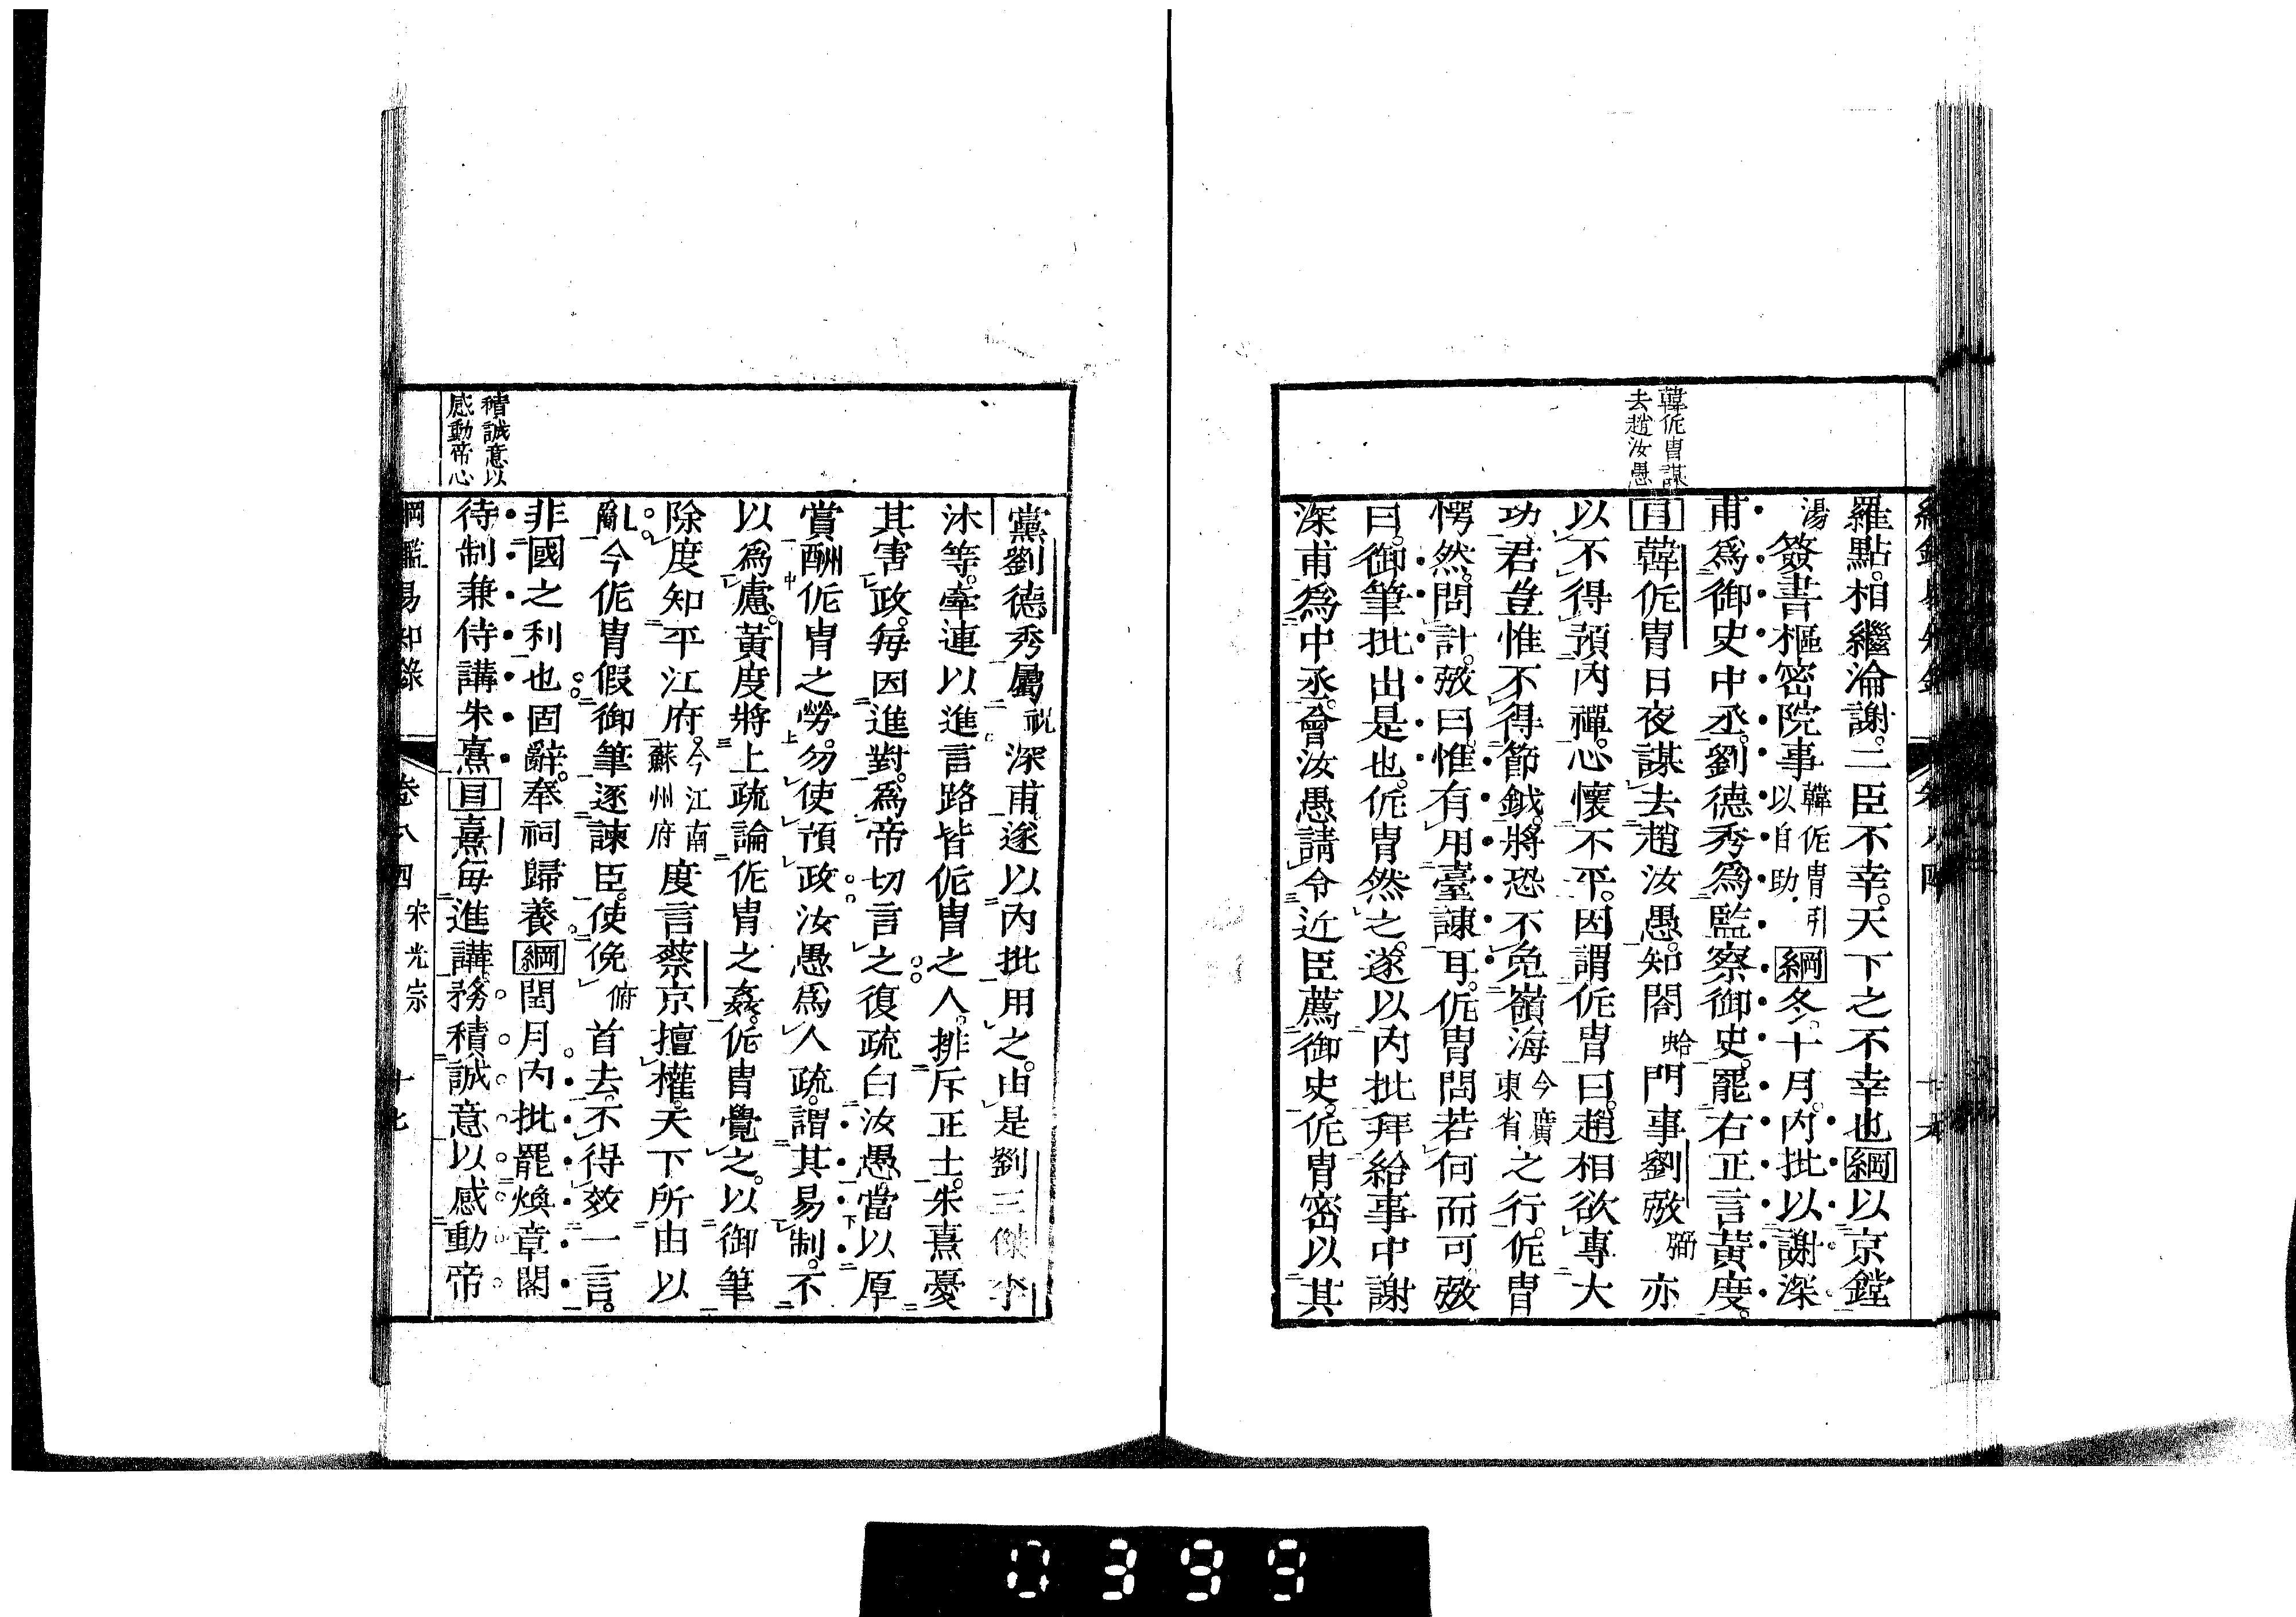 韓侂冑謀
去趙汝愚
羅點。相繼淪謝。二臣不幸。天下之不幸也綱以京鏜
湯簽書樞密院事韓侂冑引以自助綱冬。十月。內批以謝深
甫爲御史中丞。劉德秀爲監察御史。罷右正言黃度。
目韓侂冑日夜謀去趙汝愚。知閤蛤門事劉㢸弼亦
以不得預內禪。心懷不平。因謂侂冑曰。趙相欲專大
功。君豈惟不得節鉞。將恐不免嶺海今廣東省之行。侂冑
愕然。問計。㢸曰。惟有用臺諫耳。侂冑問若何而可。㢸
曰。御筆批出是也。侂冑然之。遂以內批拜給事中謝
深甫爲中丞。會汝愚請令近臣薦御史。侂冑密以其
積誠意以
感動帝心
黨劉德秀屬祝深甫。遂以內批用之。由是劉三傑李
沐等。牽連以進。言路皆侂冑之人。排斥正士。朱熹憂
其害政。每因進對。爲帝切言之。復疏白汝愚。當以厚
賞酬侂冑之勞。勿使預政。汝愚爲人疏。謂其易制。不
以爲慮。黃度將上疏論侂冑之姦。侂冑覺之。以御筆
除度知平江府。今江南蘇州府度言蔡京擅權。天下所由以
亂。今侂冑假御筆逐諫臣。使俛俯首去。不得效一言。
非國之利也。固辭。奉祠歸養綱閏月。內批罷煥章閣
待制兼侍講朱熹目熹每進講。務積誠意以感動帝
綱鑑易知錄　卷八四　宋光宗　十七